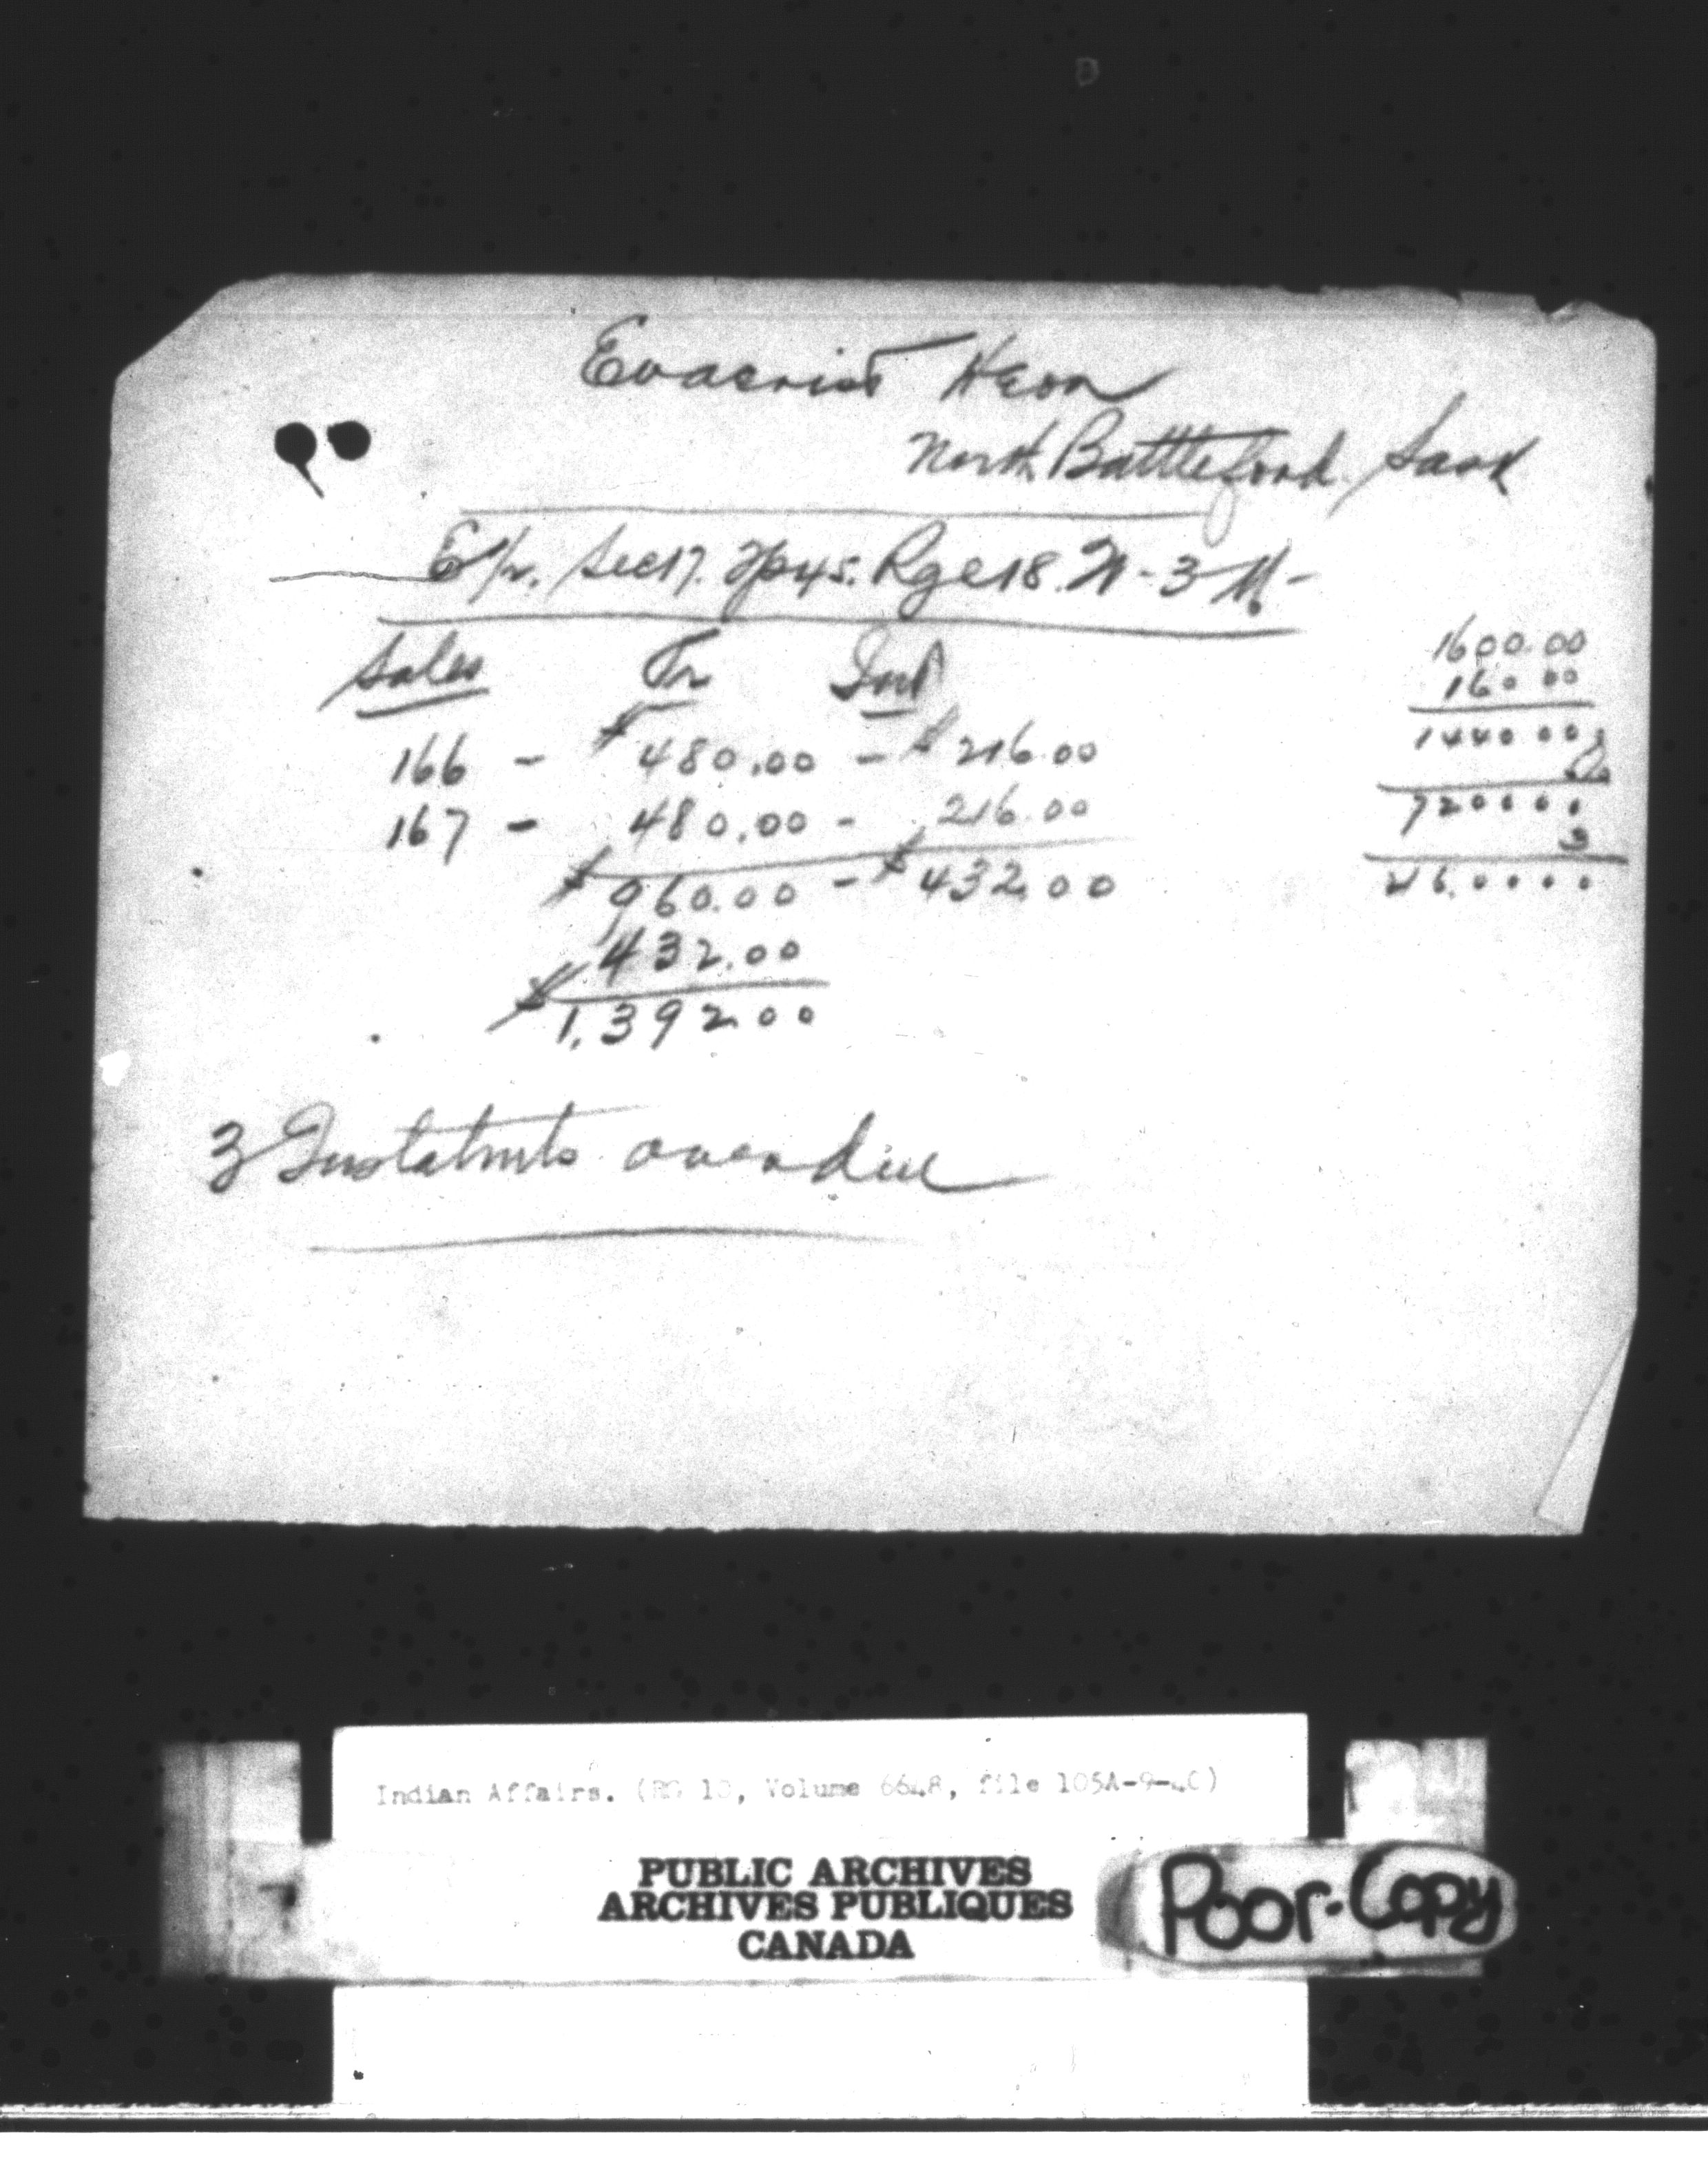 Evacrist Heon
North Battleford Sask
E½. Sec 17. Tp 45. Rge 18. W-3-M-
Sales Pr Int
166 - $480.00 - $216.00
167 - 480.00 - 216.00
$960.00 - $432.00
432.00
$1,392.00
1600.00
160 00
1440.00
720000
3
216.0000
3 Instalmts overdue
Indian Affairs. (RG 10, Volume 6648, file 105A-9-4C)
PUBLIC ARCHIVES
ARCHIVES PUBLIQUES
CANADA
Poor-Copy